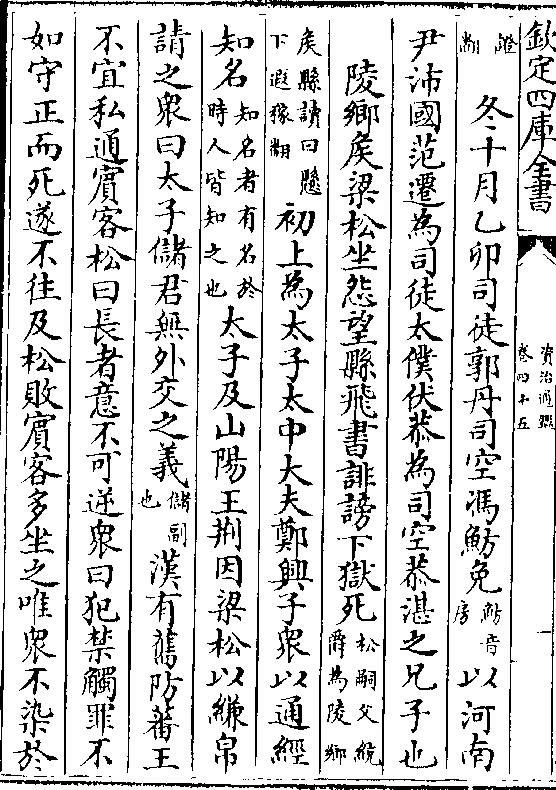 欽定四庫全書
資治通鑑
卷四十五
證翻冬十月乙卯司徒郭丹司空馮魴免魴音房以河南
尹沛國范遷為司徒太僕伏恭為司空恭湛之兄子也
陵鄉矦梁松坐怨望縣飛書誹謗下獄死松嗣父統爵為陵鄉
矦縣讀曰懸下遐稼翻初上為太子太中大夫鄭興子衆以通經
知名知名者有名於時人皆知之也太子及山陽王荆因梁松以縑帛
請之衆曰太子儲君無外交之義儲副也漢有舊防蕃王
不宜私通賓客松曰長者意不可逆衆曰犯禁觸罪不
如守正而死遂不往及松敗賓客多坐之唯衆不染於